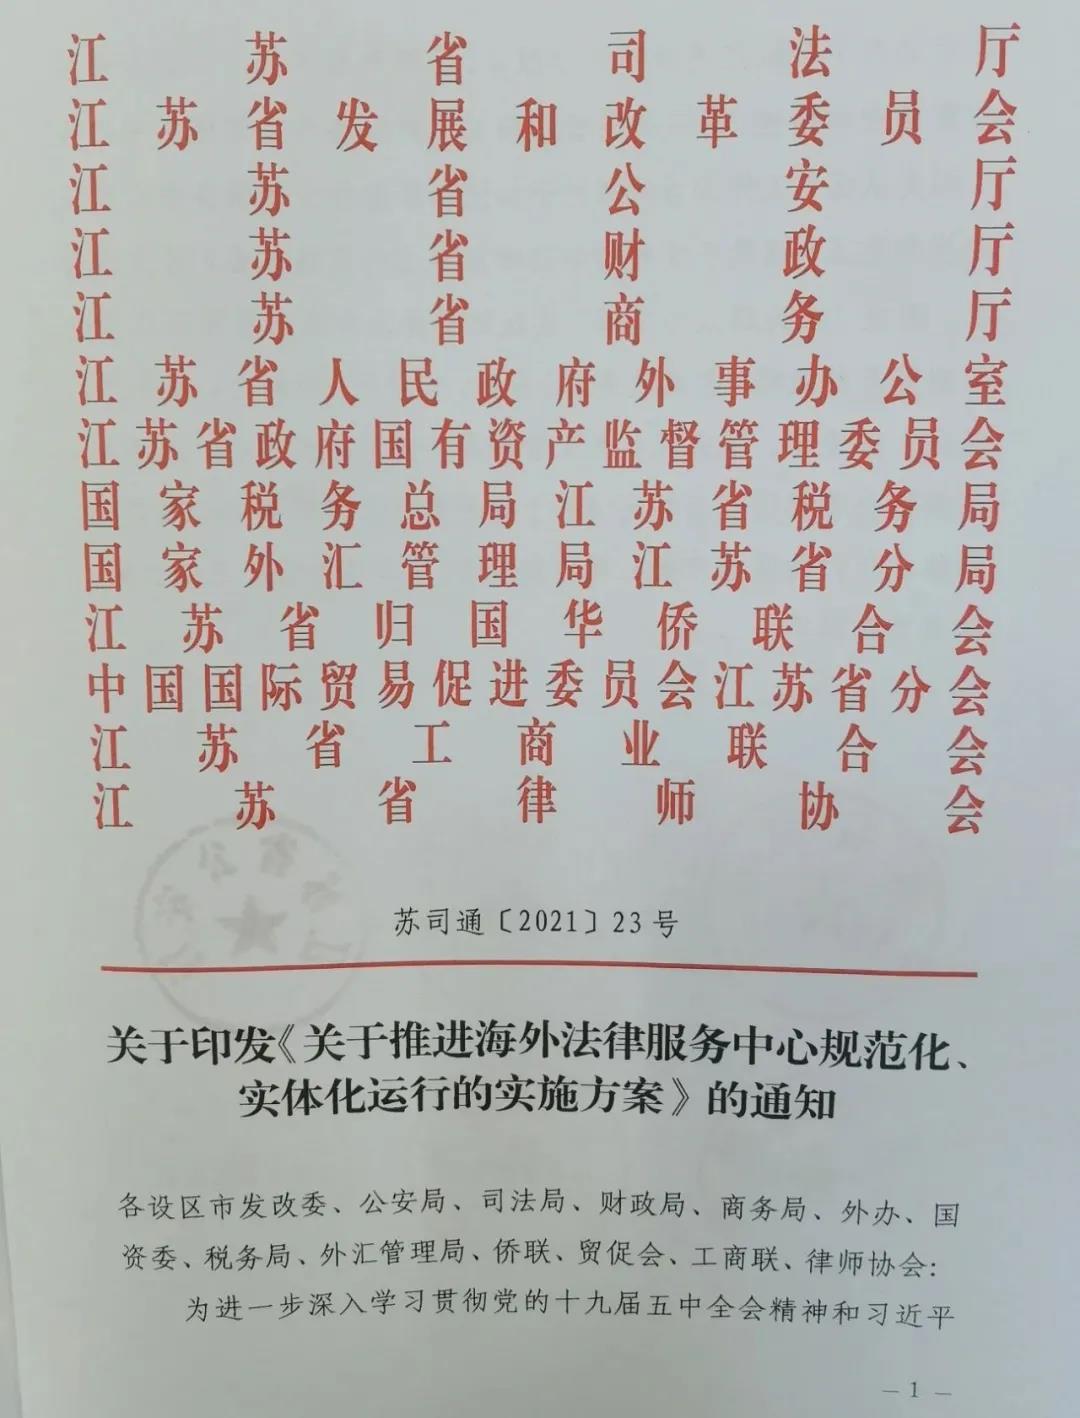 江苏省司法厅
江苏省发展和改革委员会
江苏省公安厅
江苏省财政厅
江苏省商务厅
江苏省人民政府外事办公室
江苏省政府国有资产监督管理委员会
国家税务总局江苏省税务局
国家外汇管理局江苏省分局
江苏省归国华侨联合会
中国国际贸易促进委员会江苏省分会
江苏省工商业联合会
江苏省律师协会
苏司通〔2021〕23号
关于印发《关于推进海外法律服务中心规范化、
实体化运行的实施方案》的通知
各设区市发改委、公安局、司法局、财政局、商务局、外办、国
资委、税务局、外汇管理局、侨联、贸促会、工商联、律师协会:
为进一步深入学习贯彻党的十九届五中全会精神和习近平
— 1 —